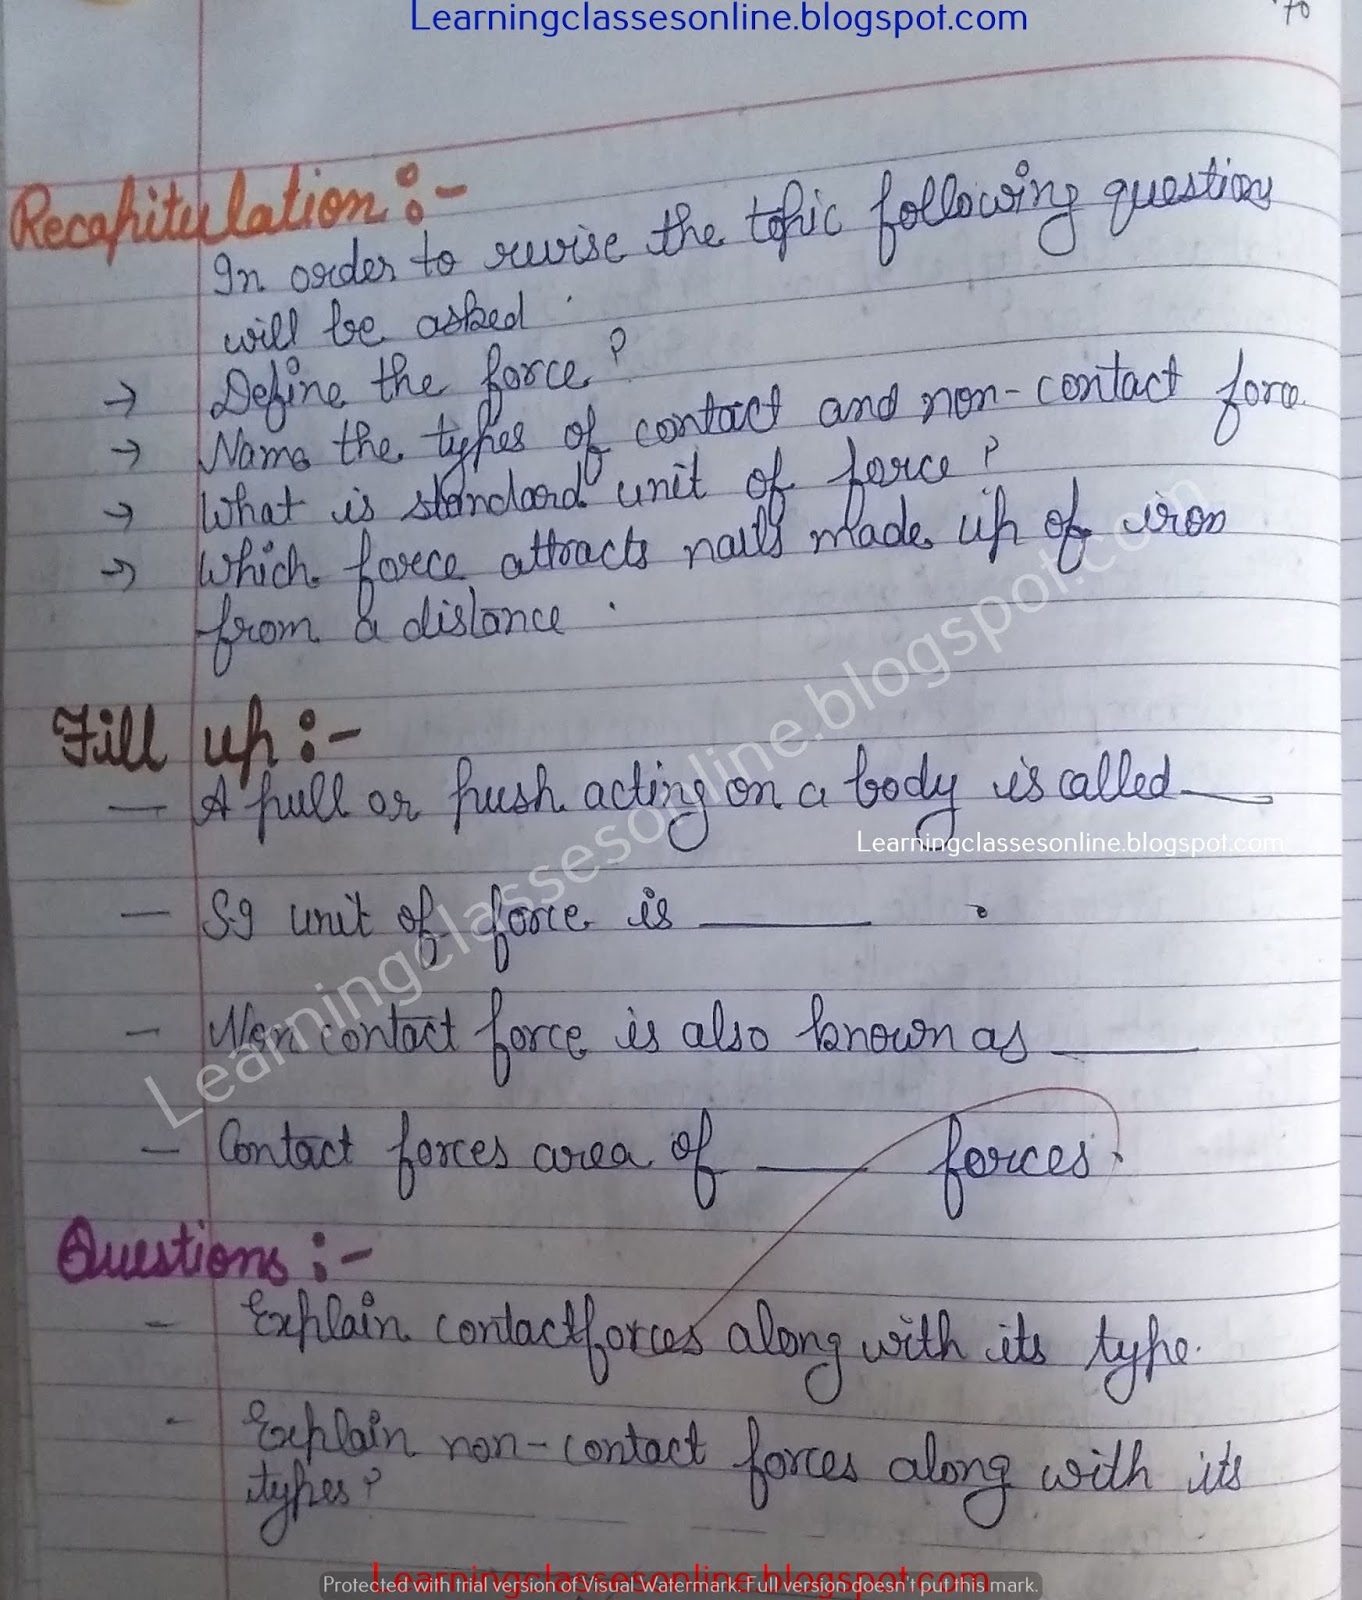 Learningclassesonline.blogspot.com
70
Recapitulation :-
In order to revise the topic following questions
will be asked.
→ Define the force?
→ Name the types of contact and non-contact force.
→ What is standard unit of force?
→ Which force attracts nails made up of iron
from a distance.
Fill up :-
— A pull or push acting on a body is called ___
Learningclassesonline.blogspot.com
— SI unit of force is ______ .
Learningclassesonline.blogspot.com
— Non contact force is also known as ______
— Contact forces area of ______ forces.
Questions :-
- Explain contact forces along with its type.
- Explain non-contact forces along with its
types?
Learningclassesonline.blogspot.com
Protected with trial version of Visual Watermark. Full version doesn't put this mark.